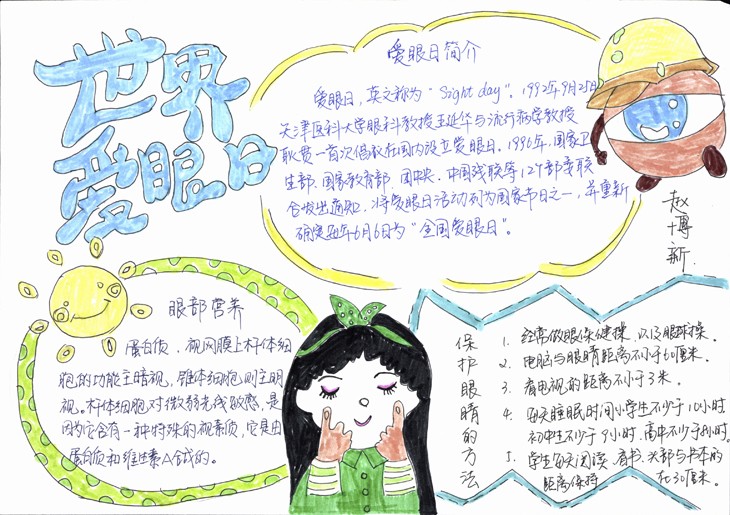 世界
爱眼日
爱眼日简介
爱眼日，英文称为“Sight day”。1992年9月25日
天津医科大学眼科教授王延华与流行病学教授
耿贯一首次倡议在国内设立爱眼日。1996年，国家卫
生部、国家教育部、团中央、中国残联等12个部委联
合发出通知，将爱眼日活动列为国家节日之一，并重新
确定每年6月6日为“全国爱眼日”。
赵
博
新
眼部营养
蛋白质，视网膜上杆体细
胞的功能主暗视，锥体细胞则主明
视。杆体细胞对微弱光线敏感，是
因为它含有一种特殊的视素质，它是由
蛋白质和维生素A合成的。
保护眼睛的方法
1. 经常做眼保健操，以及眼球操。
2. 电脑与眼睛距离不小于60厘米。
3. 看电视的距离不小于3米。
4. 每天睡眠时间小学生不少于10小时
初中生不少于9小时，高中不少于8小时。
5. 学生每天阅读、看书、头部与书本的
距离保持在30厘米。